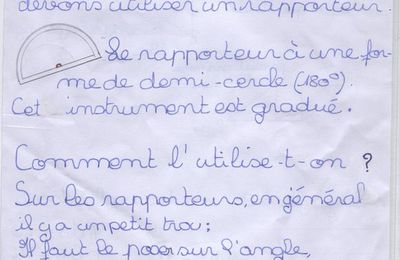 devons utiliser un rapporteur.
Le rapporteur à une for-
me de demi-cercle (180°).
Cet instrument est gradué.
Comment l'utilise-t-on ?
Sur les rapporteurs, en général
il y a un petit trou;
Il faut le poser sur l'angle,